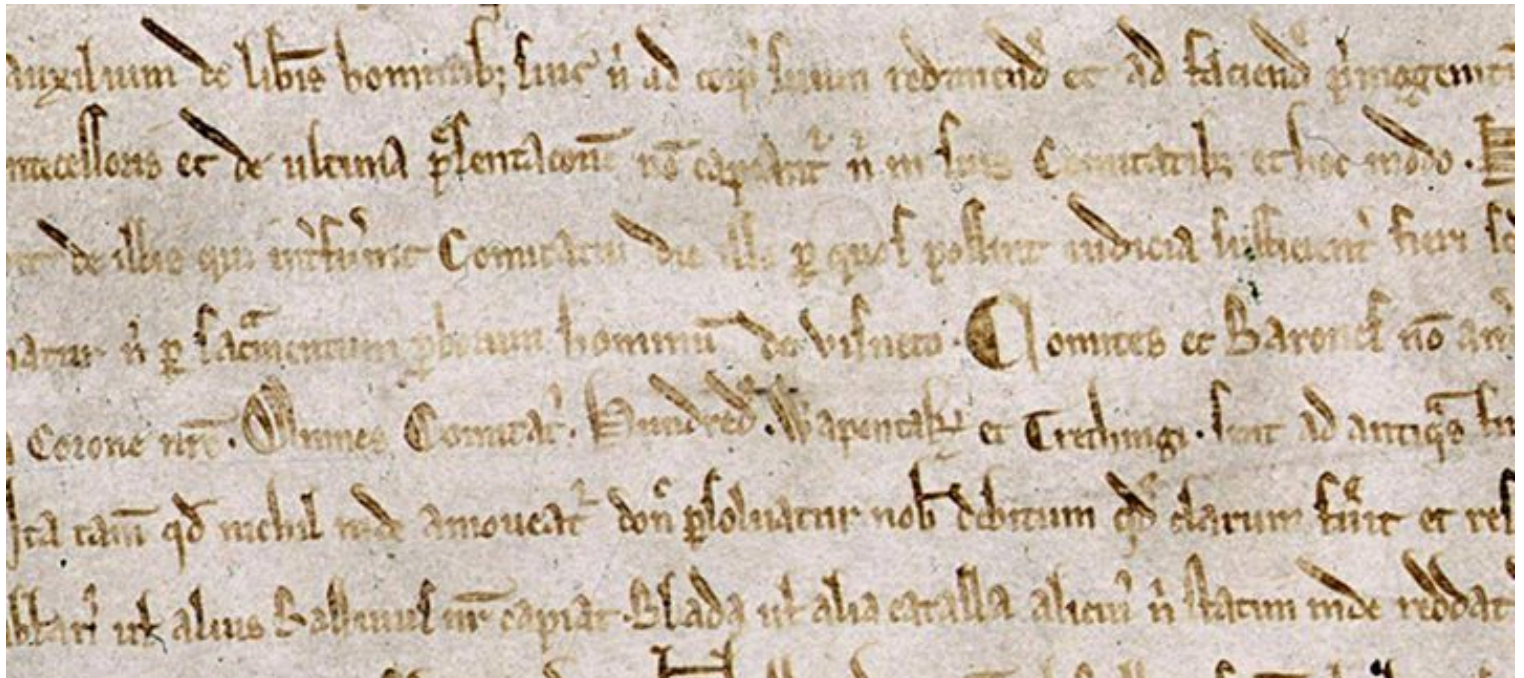 auxilium de lib̃is hominib; suis ñ ad corp̃ suum redimend̃ et ad faciend̃ p̃mogenitũ
ntecessoris et de ultima p̃sentacone nõ capiant᷑ ñ in suis Comitatib₃ et hoc modo .
de illis qui int̃fũint Comitatui die illo ꝑ quos possint iudicia sufficient̃ fieri
natur ñ ꝑ sac̃mentum ꝓborum hominũ de visneto . Comites et Barones nõ am̃
Corone nr̃e . Omnes Comitat̃ . Hundred̃ . Wapentak̃ et Trethingi . sint ad antiq̃s
Ita tam̃ qd̃ nichil inde amoveat᷑ don̾ ꝑsolvatur nob̃ debitum qd̃ clarum fũit et
ut̃ alius Ballivus nr̃ capiat . Blada ut̃ alia catalla alicui᷒ ñ statim inde reddat